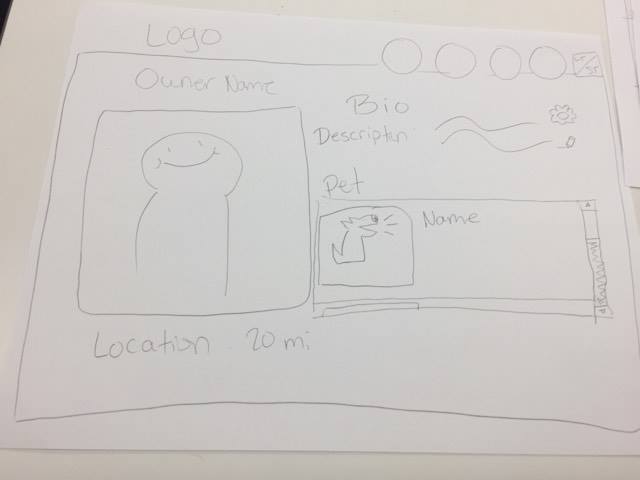 Logo
Owner Name
Bio
Description
Pet
Name
Location 20 mi